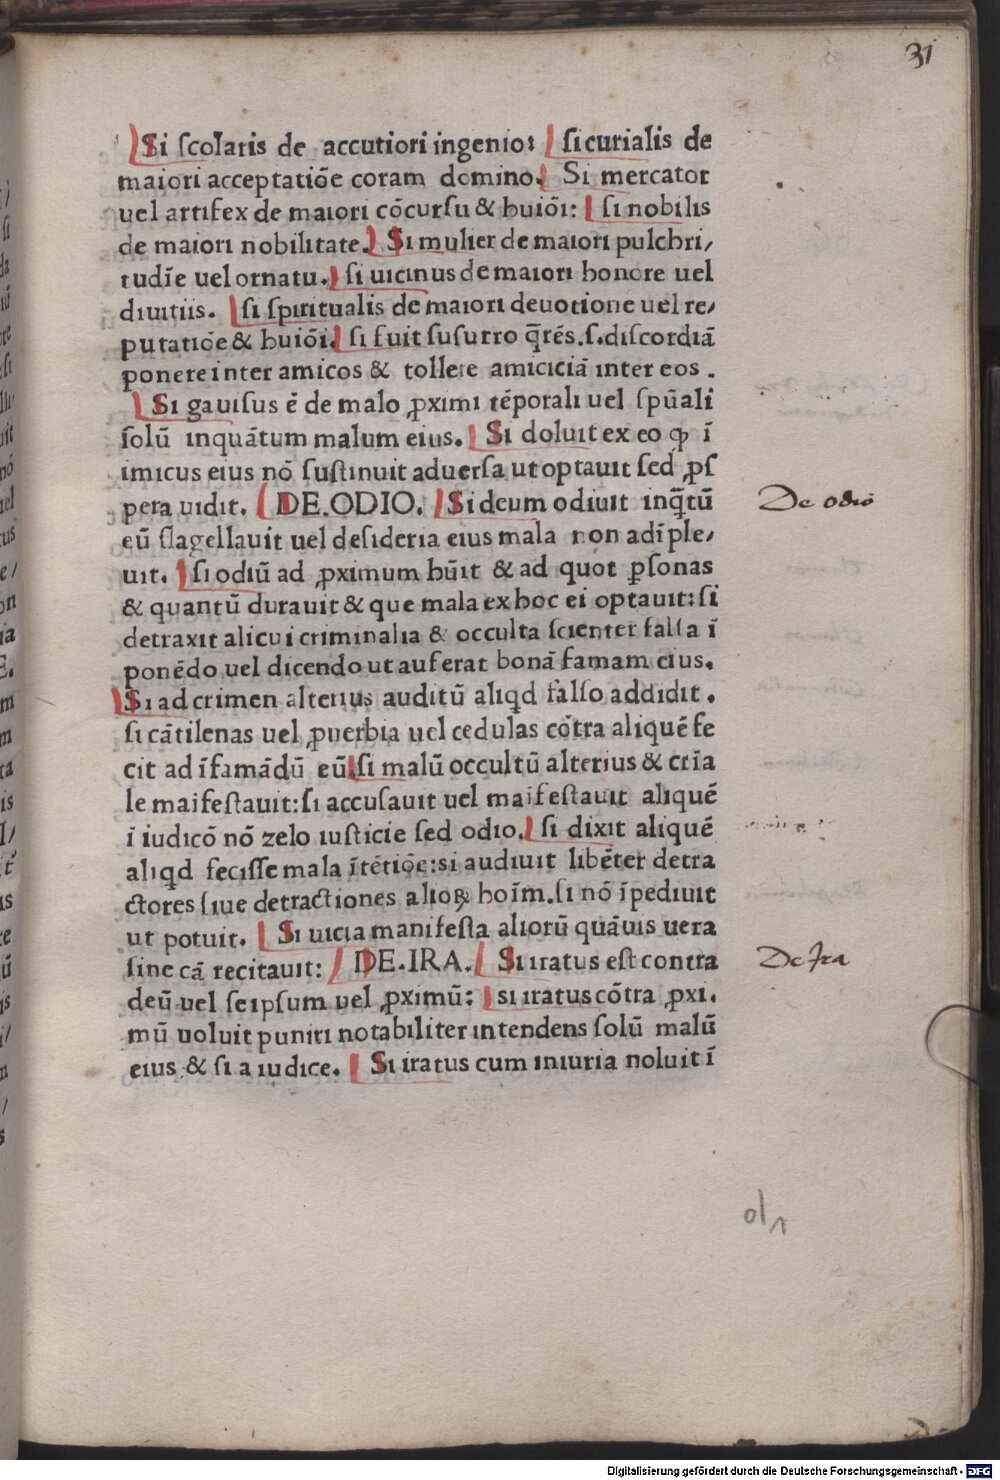 31
Si ſcolaris de accutiori ingenio: ſi curialis de
maiori acceptatiōe coram domino. Si mercator
uel artifex de maiori cōcurſu & huiōi: ſi nobilis
de maiori nobilitate. Si mulier de maiori pulchri/
tudīe uel ornatu. ſi uicinus de maiori honore uel
diuitiis. ſi ſpiritualis de maiori deuotione uel re/
putatiōe & huiōi. ſi fuit ſuſurro q̄rēs.ſ.diſcordiā
ponere inter amicos & tollere amiciciā inter eos .
Si gauiſus ē de malo ꝓximi tēporali uel ſpūali
ſolū inquātum malum eius. Si doluit ex eo ꝙ ī
imicus eius nō ſuſtinuit aduerſa ut optauit ſed ꝓſ
pera uidit. DE.ODIO. Si deum odiuit inq̄tū
De odio
eū flagellauit uel deſideria eius mala non adīple/
uit. ſi odiū ad ꝓximum hūit & ad quot ꝑſonas
& quantū durauit & que mala ex hoc ei optauit:ſi
detraxit alicui criminalia & occulta ſcienter falſa ī
ponēdo uel dicendo ut auferat bonā famam eius.
Si ad crimen alterius auditū aliqd falſo addidit .
ſi cātilenas uel ꝓuerbia uel cedulas cōtra aliquē fe
cit ad īfamādū eū ſi malū occultū alterius & etīa
le maifeſtauit:ſi accuſauit uel maifeſtauit aliquē
ī iudicō nō zelo iuſticie ſed odio. ſi dixit aliquē
aliqd feciſſe mala ītētiōe:si audiuit libēter detra
ctores ſiue detractiones alioꝝ hoīm.ſi nō īpediuit
ut potuit. Si uicia manifeſta aliorū quāuis uera
ſine cā recitauit: DE.IRA. Si iratus eſt contra
De Ira
deū uel ſeipſum uel ꝓximū: si iratus cōtra ꝓxi.
mū uoluit puniri notabiliter intendens ſolū malū
eius & ſi a iudice. Si iratus cum iniuria noluit ī
Digitalisierung gefördert durch die Deutsche Forschungsgemeinschaft - DFG